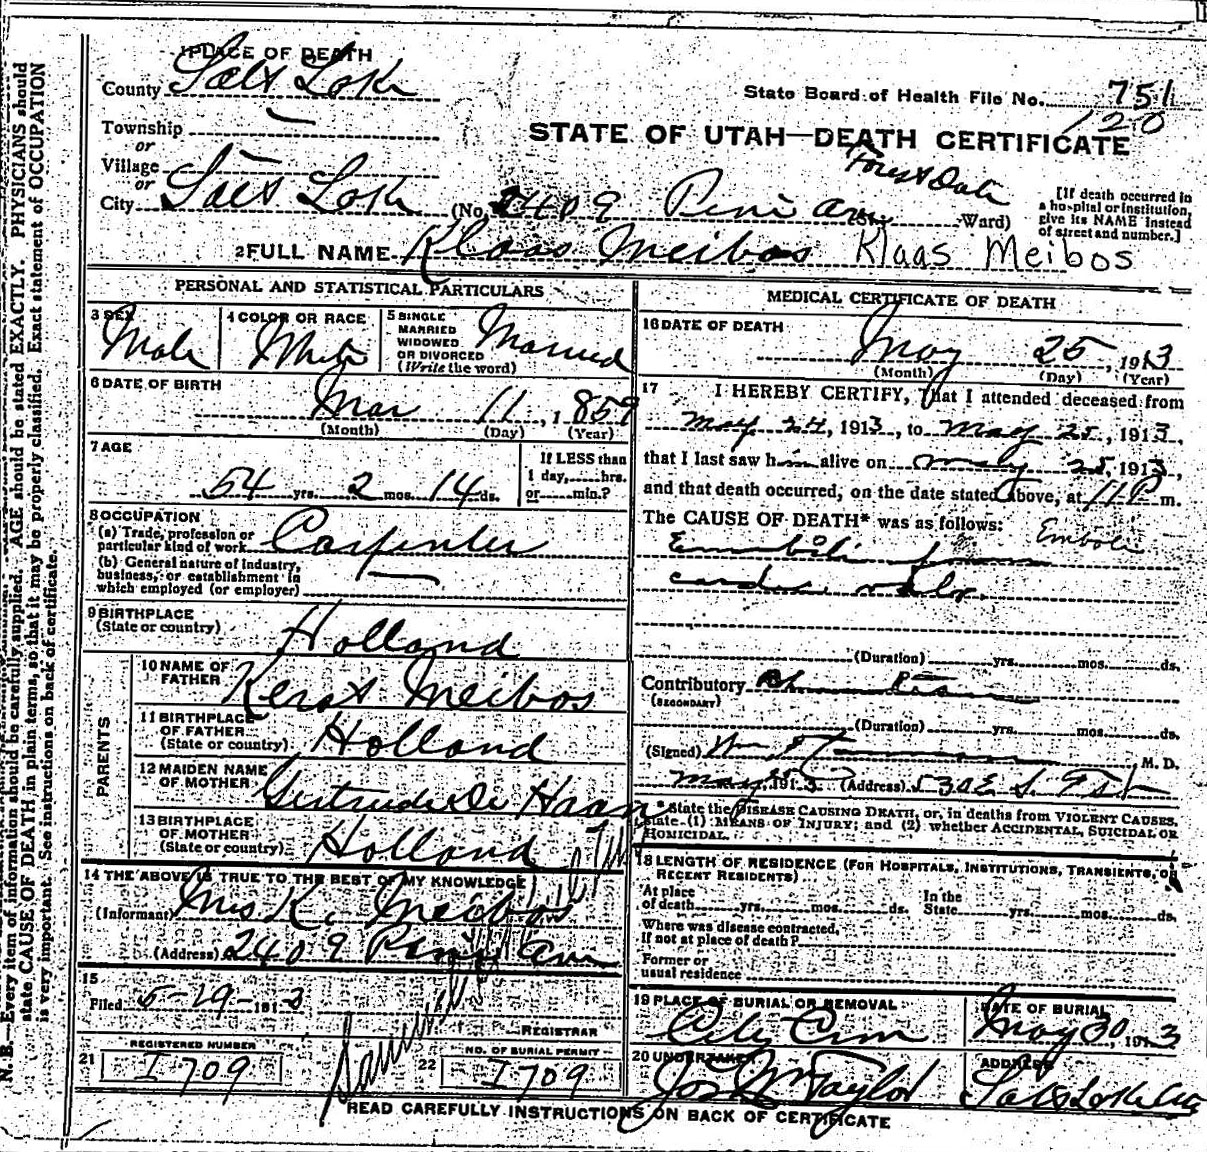 1 PLACE OF DEATH
County Salt Lake
State Board of Health File No. 751
120
Township
or
Village
or
City Salt Lake (No. 2409 Penn Ave Ward)
Forest Dale
STATE OF UTAH—DEATH CERTIFICATE
[If death occurred in
a hospital or institution,
give its NAME instead
of street and number.]
2 FULL NAME Klaas Meibos Klaas Meibos
PERSONAL AND STATISTICAL PARTICULARS
3 SEX Male
4 COLOR OR RACE White
5 SINGLE
MARRIED
WIDOWED
OR DIVORCED
(Write the word) Married
6 DATE OF BIRTH
Mar 11, 1859
(Month) (Day) (Year)
7 AGE
54 yrs. 2 mos. 14 ds.
If LESS than
1 day, hrs.
or min.?
8 OCCUPATION
(a) Trade, profession or
particular kind of work Carpenter
(b) General nature of industry,
business, or establishment in
which employed (or employer)
9 BIRTHPLACE
(State or country) Holland
PARENTS
10 NAME OF
FATHER Kerst Meibos
11 BIRTHPLACE
OF FATHER
(State or country) Holland
12 MAIDEN NAME
OF MOTHER Gertrude De Haan
13 BIRTHPLACE
OF MOTHER
(State or country) Holland
14 THE ABOVE IS TRUE TO THE BEST OF MY KNOWLEDGE
(Informant) Mrs K. Meibos
(Address) 2409 Penn Ave
15
Filed 5-29-1913
REGISTRAR
21 REGISTERED NUMBER
I 709
22 NO. OF BURIAL PERMIT
I 709
MEDICAL CERTIFICATE OF DEATH
16 DATE OF DEATH
May 25, 1913
(Month) (Day) (Year)
17 I HEREBY CERTIFY, That I attended deceased from
May 24, 1913, to May 25, 1913,
that I last saw him alive on May 25, 1913,
and that death occurred, on the date stated above, at 11 P m.
The CAUSE OF DEATH* was as follows: Emboli
Emboli from
cardiac valv.
(Duration) yrs. mos. ds.
Contributory
(SECONDARY)
(Duration) yrs. mos. ds.
(Signed) Wm M. D.
May 1913 (Address) 530 E S.
*State the DISEASE CAUSING DEATH, or, in deaths from VIOLENT CAUSES,
state (1) MEANS OF INJURY; and (2) whether ACCIDENTAL, SUICIDAL OR
HOMICIDAL.
18 LENGTH OF RESIDENCE (FOR HOSPITALS, INSTITUTIONS, TRANSIENTS, OR
RECENT RESIDENTS)
At place
of death yrs. mos. ds.
In the
State yrs. mos. ds.
Where was disease contracted,
If not at place of death?
Former or
usual residence
19 PLACE OF BURIAL OR REMOVAL
City Cem
DATE OF BURIAL
May 30, 1913
20 UNDERTAKER
Jos Wm Taylor
ADDRESS
Salt Lake City
READ CAREFULLY INSTRUCTIONS ON BACK OF CERTIFICATE
N. B. Every item of information should be carefully supplied. AGE should be stated EXACTLY. PHYSICIANS should
state CAUSE OF DEATH in plain terms, so that it may be properly classified. Exact statement of OCCUPATION
is very important. See instructions on back of certificate.